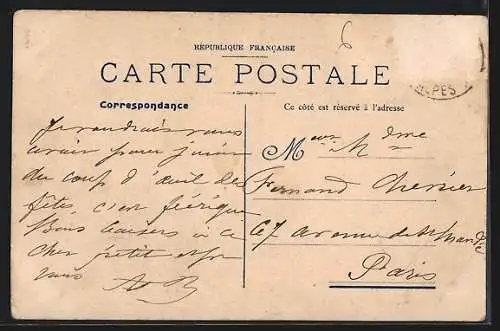 RÉPUBLIQUE FRANÇAISE
CARTE POSTALE
Correspondance
Ce côté est réservé à l'adresse
Je voudrais vous
avoir pour jouir
du coup d'œil des
fêtes c'est féérique
Bons baisers à ce
cher petit et
vous
A B
Meur Mme
Fernand
67 avenue de St Mandé
Paris
6